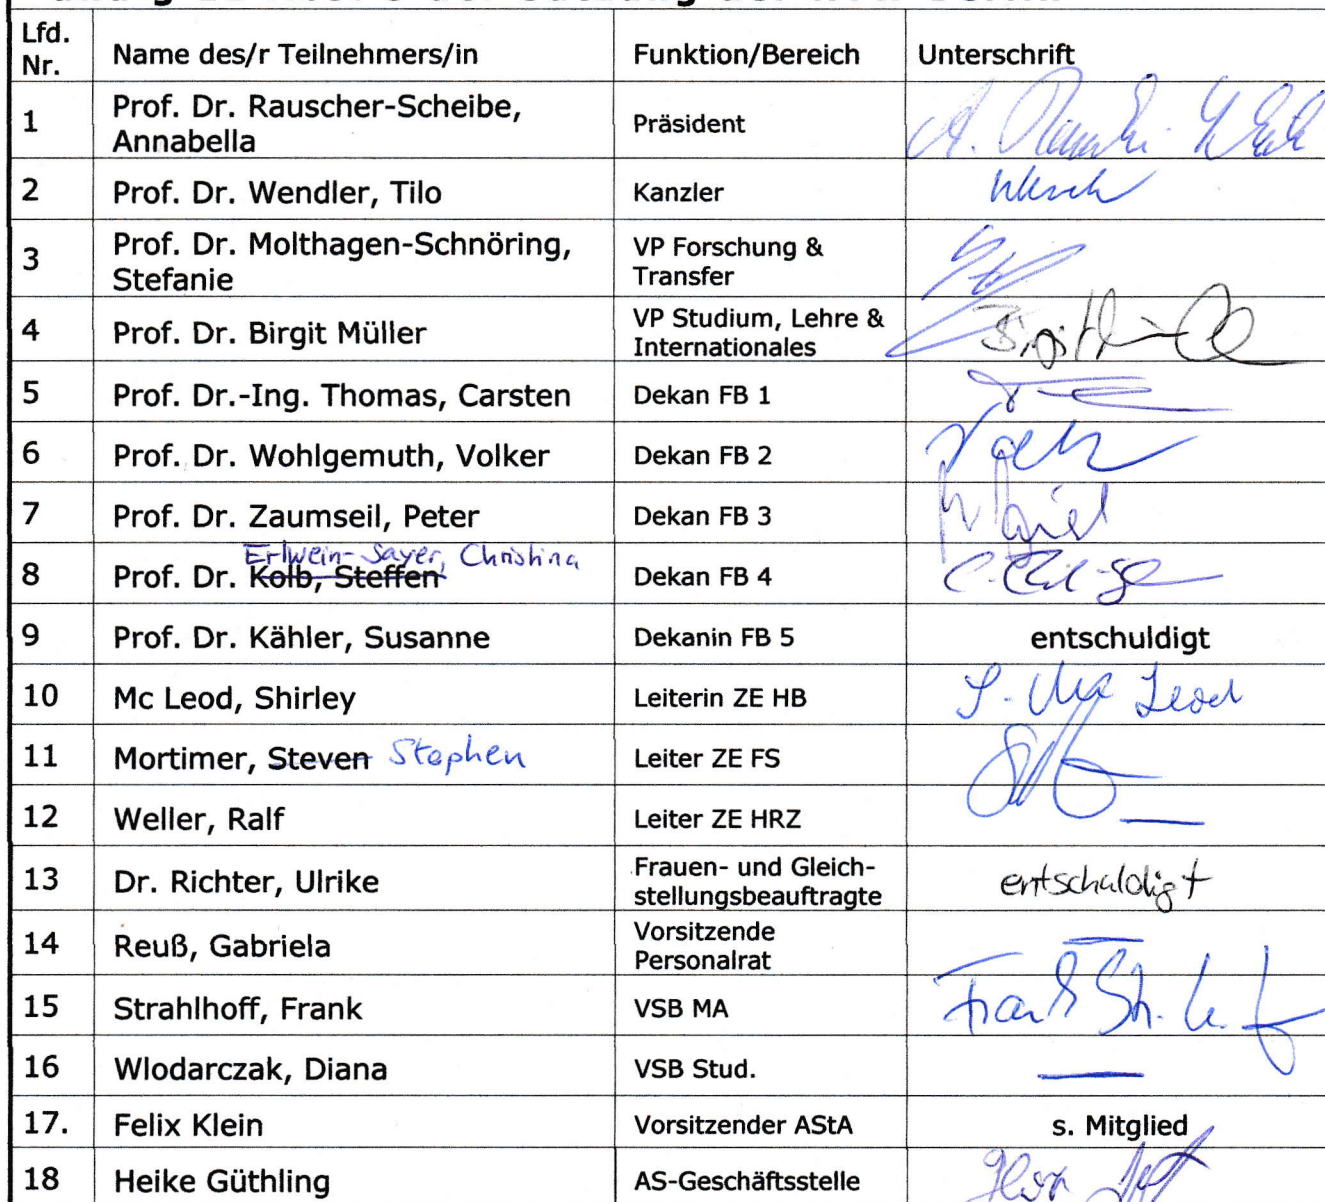 Lfd. Nr. Name des/r Teilnehmers/in Funktion/Bereich Unterschrift
1 Prof. Dr. Rauscher-Scheibe, Annabella Präsident
2 Prof. Dr. Wendler, Tilo Kanzler
3 Prof. Dr. Molthagen-Schnöring, Stefanie VP Forschung & Transfer
4 Prof. Dr. Birgit Müller VP Studium, Lehre & Internationales
5 Prof. Dr.-Ing. Thomas, Carsten Dekan FB 1
6 Prof. Dr. Wohlgemuth, Volker Dekan FB 2
7 Prof. Dr. Zaumseil, Peter Dekan FB 3
Erlwein-Sayer, Christina
8 Prof. Dr. Kolb, Steffen Dekan FB 4
9 Prof. Dr. Kähler, Susanne Dekanin FB 5 entschuldigt
10 Mc Leod, Shirley Leiterin ZE HB S. Mc Leod
11 Mortimer, Steven Stephen Leiter ZE FS
12 Weller, Ralf Leiter ZE HRZ
13 Dr. Richter, Ulrike Frauen- und Gleich- stellungsbeauftragte entschuldigt
14 Reuß, Gabriela Vorsitzende Personalrat
15 Strahlhoff, Frank VSB MA Frank
16 Wlodarczak, Diana VSB Stud.
17. Felix Klein Vorsitzender AStA s. Mitglied
18 Heike Güthling AS-Geschäftsstelle